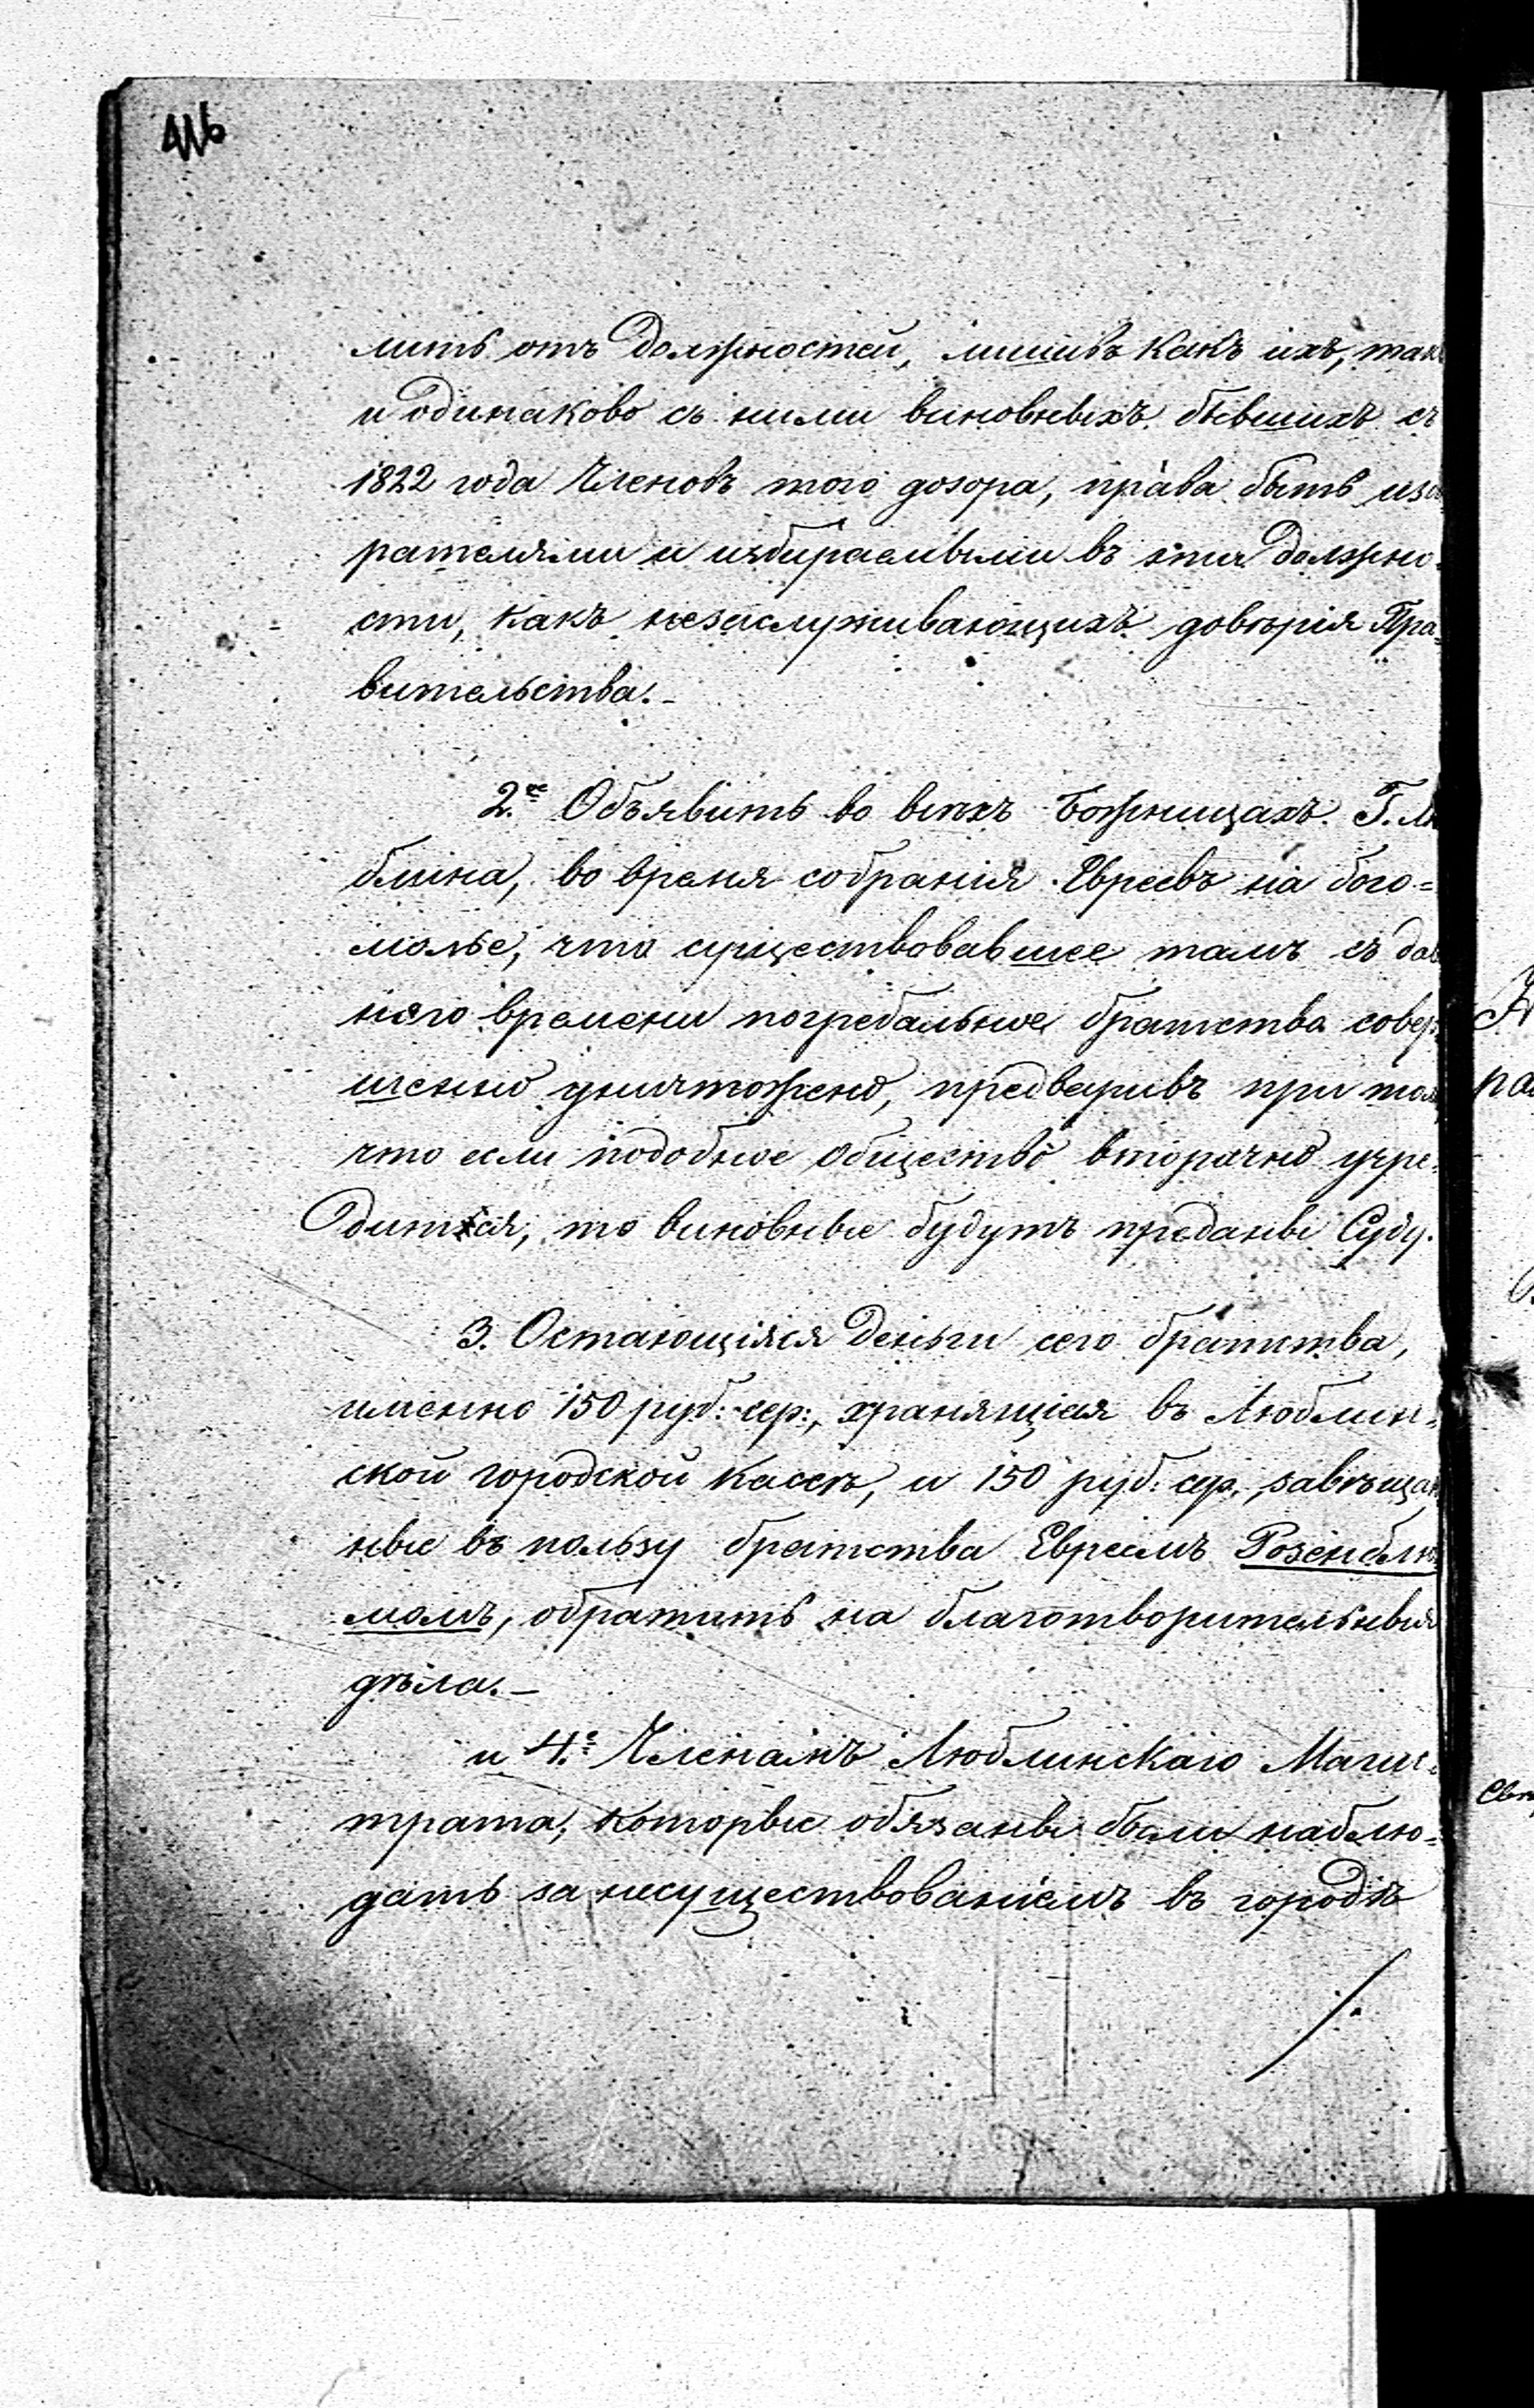 416
лить отъ должностей, лишивъ какъ ихъ, так
и одинаково съ ними виновныхъ бывшихъ съ
1822 года Членовъ того дозора, права быть из
рателями и избираемыми въ эти должно-
сти, какъ незаслуживающихъ довѣрія Пра-
вительства.-
2.е Объявить во всѣхъ Божницахъ Г. Лю
блина, во время собранія Евреевъ на бого=
молье, что существовавшее тамъ съ дав
няго времени погребальное братство совер-
шенно уничтожено, предваривъ при том
что если подобное общество вторично учре-
дится, то виновные будутъ преданы Суду.
3. Остающіяся деньги сего братства,
именно 150 руб: сер:, хранящіяся въ Люблин-
ской городской кассѣ, и 150 руб: сер., завѣщан
ные въ пользу братства Евреемъ Розенблю
момъ, обратить на благотворительныя
дѣла.-
и 4.е Членамъ Люблинскаго Магис-
трата, которые обязаны были наблю=
дать за несуществованіемъ въ городѣ
/.